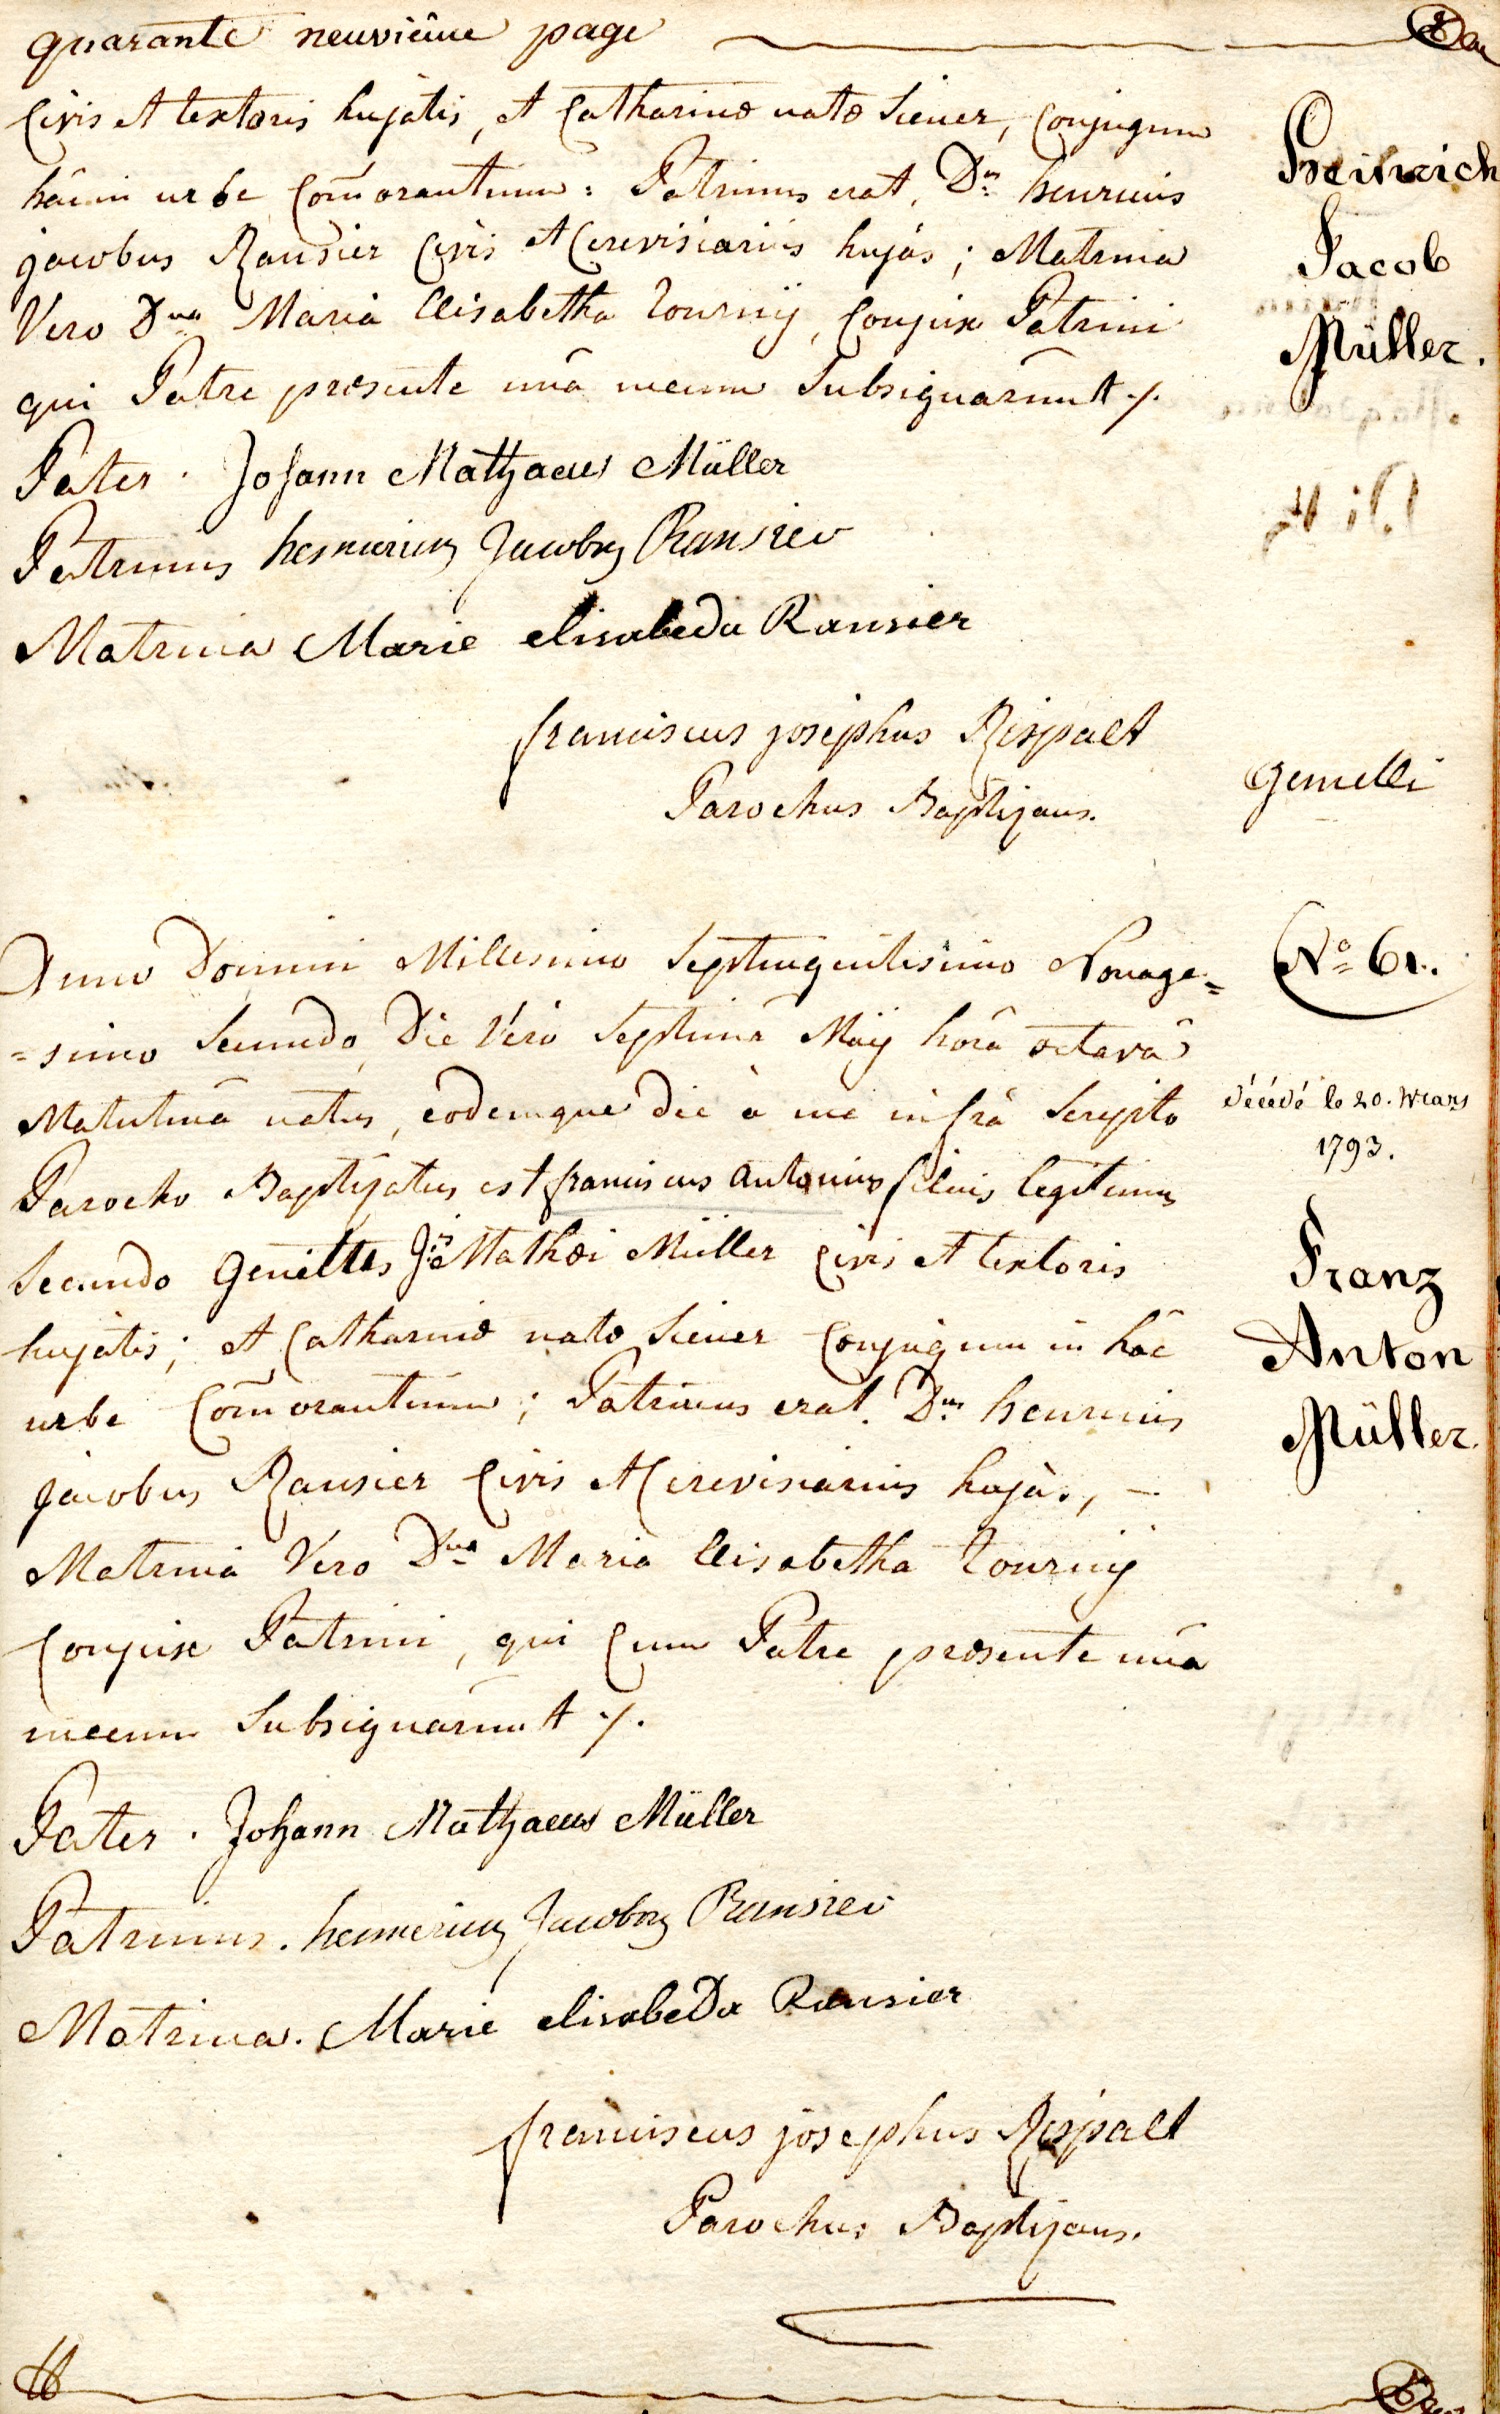 quarante neuvième page
Civis et textoris hujatis, et Catharinæ natæ Siener, Conjugum
hâc in urbe Com̄orantium: Patrinus erat, Dnus henricus
jacobus Ransier Civis et Cerevisiarius hujás; Matrina
Vero Dna Maria Elisabetha Tourny, Conjux Patrini
qui Patre præsente unâ mecum Subsignarunt ./.
Pater. Johann Mathaeus Müller
Patrinus Jacobus Ransier
Matrina Marie elisabeda Ransier
franciscus josephus Rispalt
Parochus Baptizans.
Heinrich
Jacob
Müller.
Gemelli
No 61.
décédé le 20. Mars
1793.
Franz
Anton
Müller.
Anno Domini Millesimo Septingentesimo Nonage=
=simo Secundo, Die Vero Septima Maÿ horâ octavâ
Matutinâ natus, eodemque die à me infrà Scripto
Parocho Baptizatus est franciscus antonius filius legitimus
Secundo Genitus Jis Mathæi Müller Civis et textoris
hujatis; et Catharinæ natæ Siener Conjugum in hâc
urbe Com̄orantium; Patrinus erat. Dnus henricus
jacobus Ransier Civis et Cerevisiarius hujàs, —
Matrina Vero Dna Maria Elisabetha Tourny
Conjux Patrini, qui Cum Patre præsente unâ
mecum Subsignarunt ./.
Pater. Johann Mathaeus Müller
Patrinus. Jacobus Ransier
Matrina. Marie elisabeda Ransier
franciscus josephus Rispalt
Parochus Baptizans.